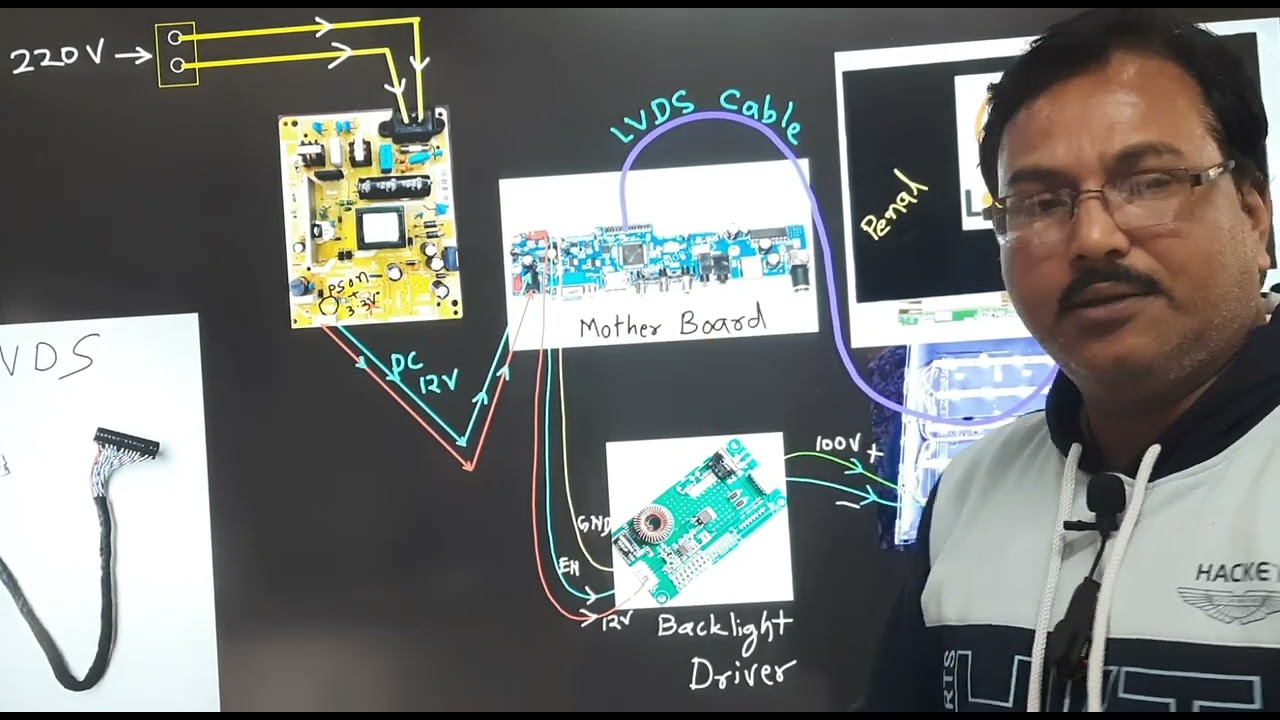 220V
LVDS Cable
Penal
PSON
3.3V
Mother Board
VDS
DC
12V
100V +
-
GND
EN
12V
Backlight
Driver
HACKE
RTS